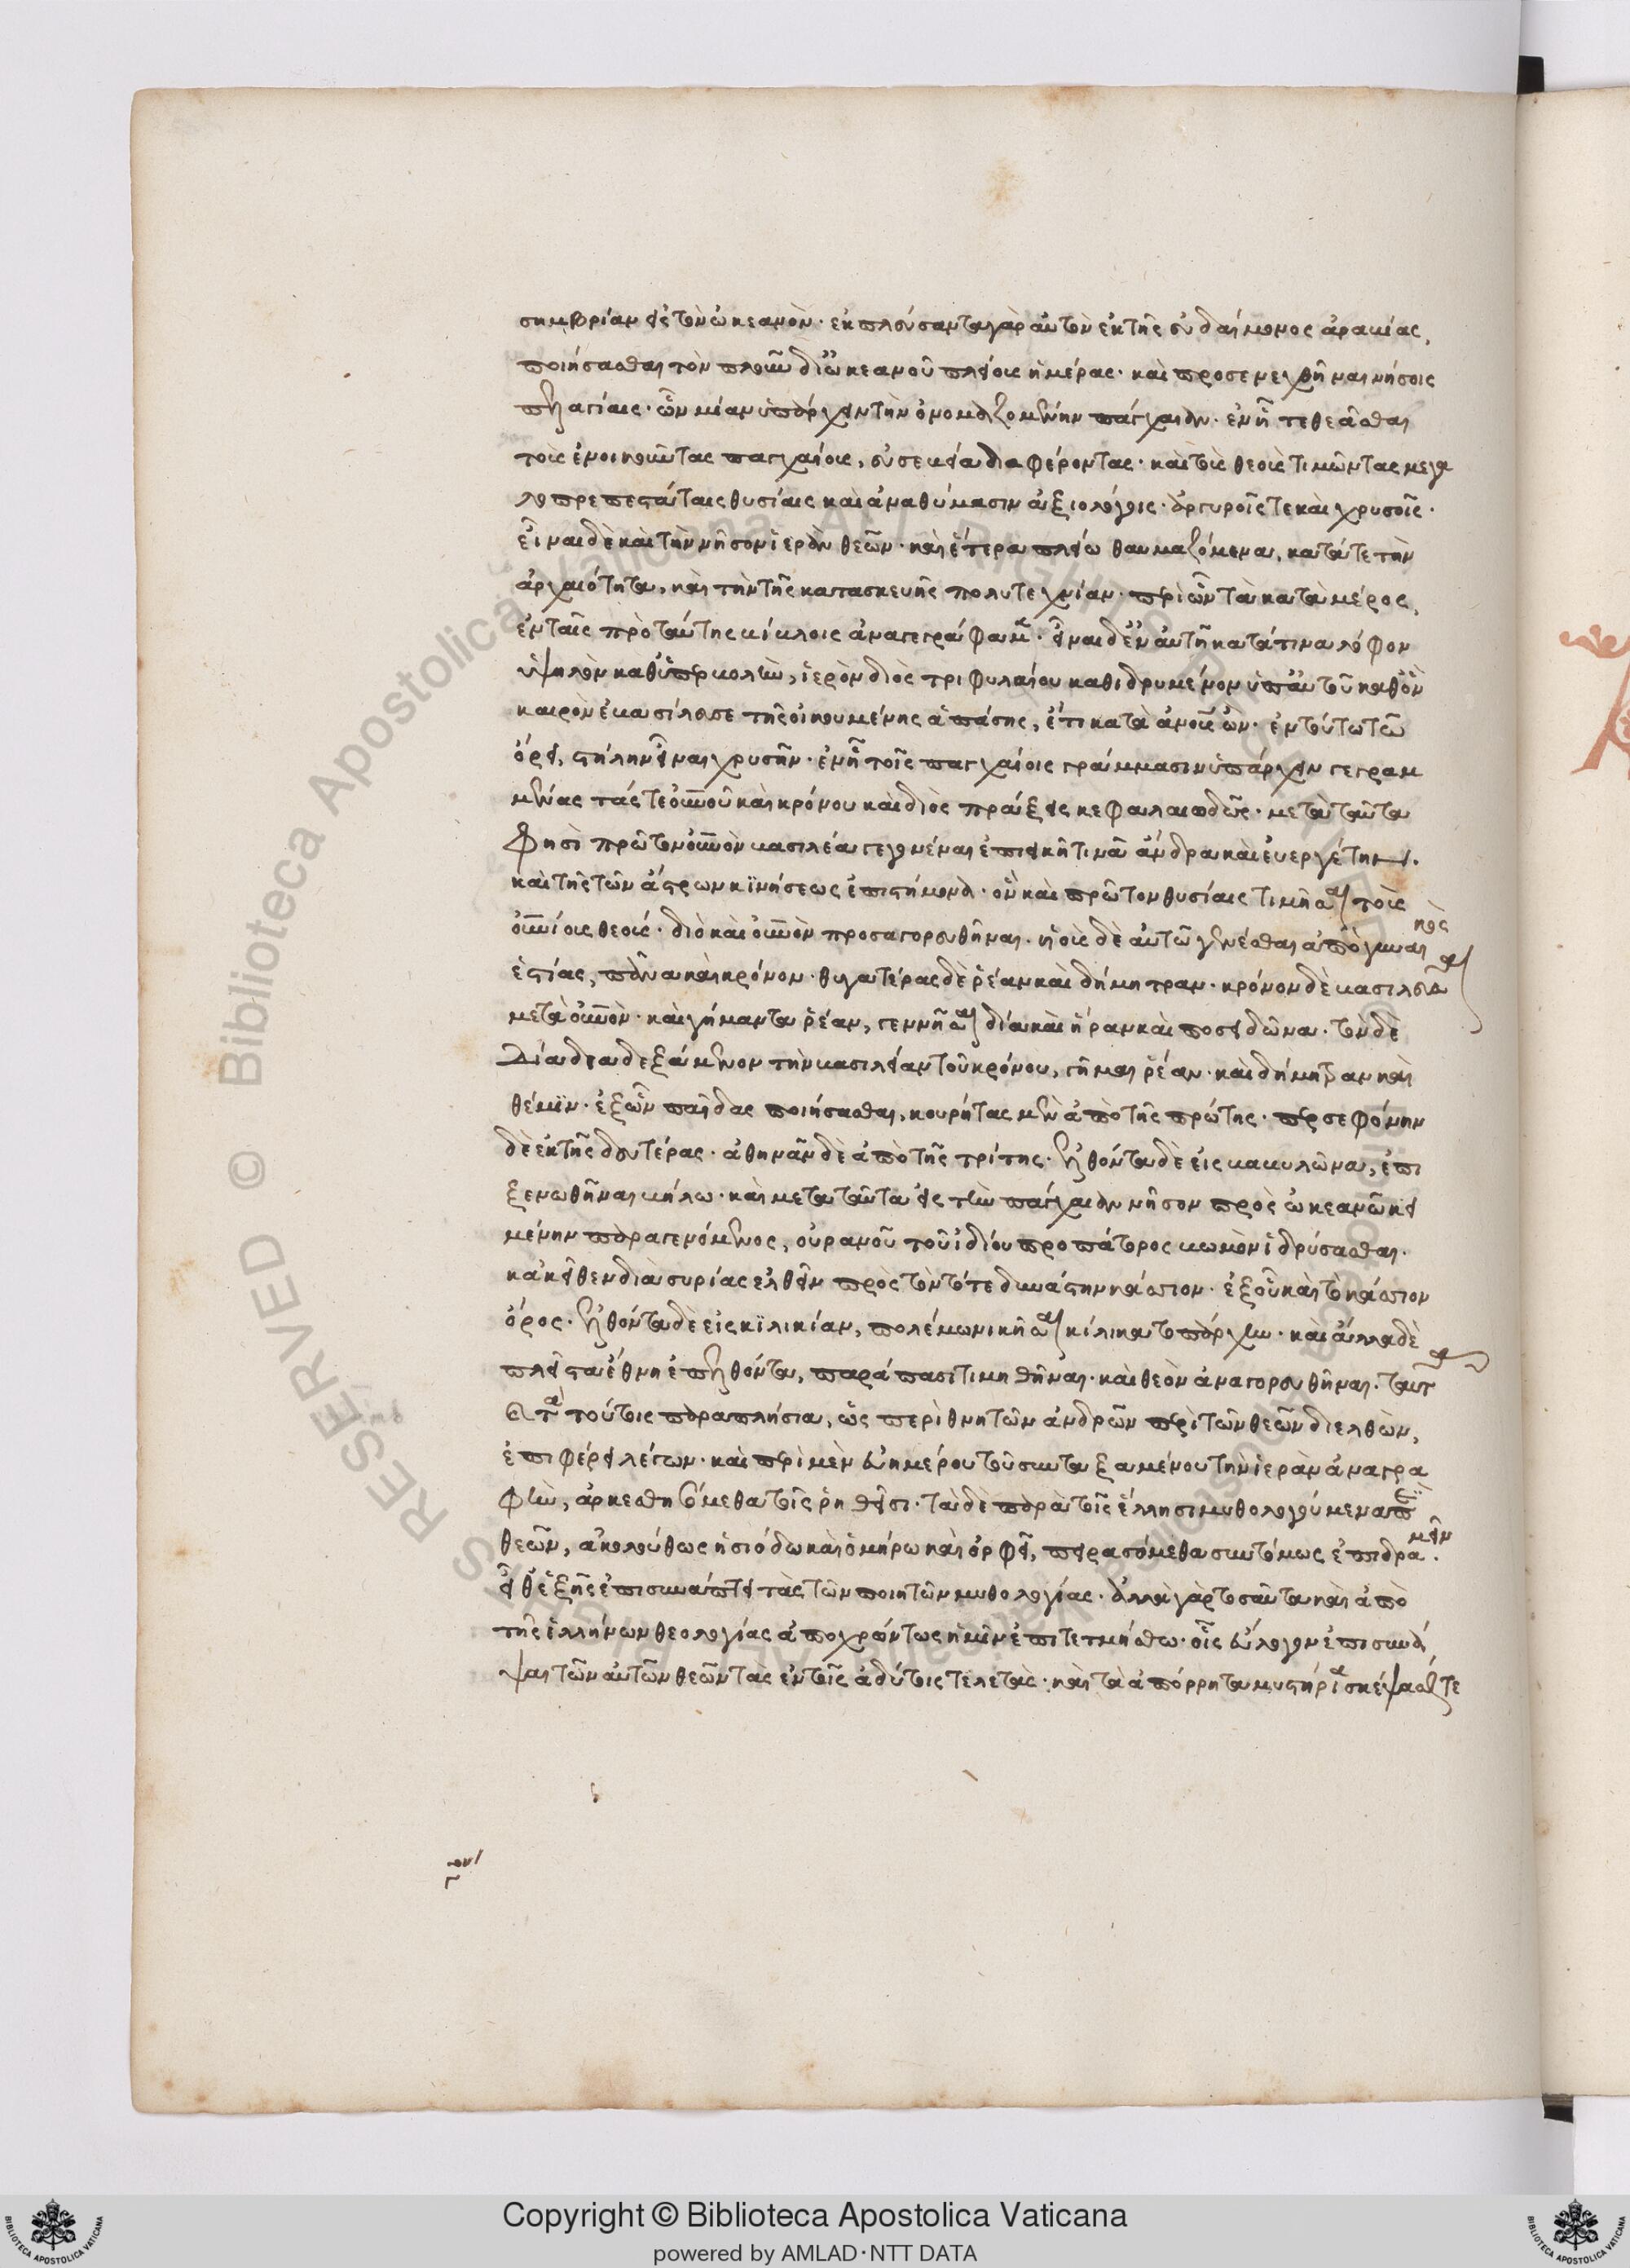 σημβρίαν εἰς τὸν ὠκεανόν· ἐκπλεύσαντα γὰρ αὐτὸν ἐκ τῆς εὐδαίμονος ἀραβίας,
ποιήσασθαι τὸν πλοῦν δι' ὠκεανοῦ πλείους ἡμέρας· καὶ προσενεχθῆναι νήσοις
πελαγίαις· ὧν μίαν ὑπάρχειν τὴν ὀνομαζομένην παγχαίαν· ἐν ᾗ τεθεᾶσθαι
τοὺς ἐνοικοῦντας παγχαίους, εὐσεβείᾳ διαφέροντας· καὶ τοὺς θεοὺς τιμῶντας μεγα
λοπρεπεστάταις θυσίαις καὶ ἀναθήμασιν ἀξιολόγοις· ἀργυροῖς τε καὶ χρυσοῖς·
εἶναι δὲ καὶ τὴν νῆσον ἱερὰν θεῶν· καὶ ἕτερα πλείω θαυμαζόμενα, κατά τε τὴν
ἀρχαιότητα, καὶ τὴν τῆς κατασκευῆς πολυτεχνίαν· περὶ ὧν τὰ κατὰ μέρος,
ἐν ταῖς πρὸ ταύτης βίβλοις ἀναγεγράφαμεν· εἶναι δ' ἐν αὐτῇ κατά τινα λόφον
ὑψηλὸν καθ' ὑπερβολὴν, ἱερὸν διὸς τριφυλαίου καθιδρυμένον ὑπ' αὐτοῦ καθ' ὃν
καιρὸν ἐβασίλευσε τῆς οἰκουμένης ἁπάσης, ἔτι κατὰ ἀνοὺς ὤν· ἐν τούτῳ τῷ
ὄρει, στήλην εἶναι χρυσῆν· ἐν ᾗ τοῖς παγχαίοις γράμμασιν ὑπάρχειν γεγραμ
μένας τάς τε οὐνοῦ καὶ κρόνου καὶ διὸς πράξεις κεφαλαιωδῶς· μετὰ ταῦτα
φησὶ πρῶτον οὐνὸν βασιλέα γεγονέναι ἐπιεικῆ τινὰ ἄνδρα καὶ εὐεργέτην·
καὶ τῆς τῶν ἄστρων κϊνήσεως ἐπιστήμονα· ὃν καὶ πρῶτον θυσίαις τιμῆσαι τοὺς
οὐνίους θεούς· διὸ καὶ οὐνὸν προσαγορευθῆναι· υἱοὺς δὲ αὐτῷ γενέσθαι ἀπὸ γυναι κὸς
ἑστίας, πᾶνα καὶ κρόνον· θυγατέρας δὲ ῥέαν καὶ δήμητραν· κρόνον δὲ βασιλεῦσαι
μετὰ οὐνὸν· καὶ γήμαντα ῥέαν, γεννῆσαι δία καὶ ἥραν καὶ ποσειδῶνα· τὸν δὲ
Δία διαδεξάμενον τὴν βασιλείαν τοῦ κρόνου, γῆμαι ῥέαν· καὶ δήμητραν καὶ
θέμϊν· ἐξ ὧν παῖδας ποιήσασθαι, κουρῆτας μὲν ἀπὸ τῆς πρώτης· περσεφόνην
δὲ ἐκ τῆς δευτέρας· ἀθηνᾶν δὲ ἀπὸ τῆς τρίτης· ἐλθόντα δὲ εἰς βαβυλῶνα, ἐπι
ξενωθῆναι βήλῳ· καὶ μετὰ ταῦτα εἰς τὴν παγχαίαν νῆσον πρὸς ὠκεανῷ κει
μένην παραγενόμενος, οὐρανοῦ τοῦ ἰδίου προπάτορος βωμὸν ἱδρύσασθαι·
κἀκεῖθεν διὰ συρίας ἐλθεῖν πρὸς τὸν τότε δυνάστην κάσιον· ἐξ οὗ καὶ τὸ κάσιον
ὄρος· ἐλθόντα δὲ εἰς κϊλικίαν, πολέμῳ νικῆσαι κίλικα τοπάρχην· καὶ ἄλλα δὲ
πλεῖστα ἔθνη ἐπελθόντα, παρά πασι τιμηθῆναι· καὶ θεὸν ἀναγορευθῆναι· ταῦτα
καὶ τὰ τούτοις παραπλήσια, ὡς περὶ θνητῶν ἀνδρῶν περὶ τῶν θεῶν διελθὼν,
ἐπιφέρει λέγων· καὶ περὶ μὲν εὐημέρου τοῦ συνταξαμένου τὴν ἱερὰν ἀναγρα
φὴν, ἀρκεσθησόμεθα τοῖς ῥηθεῖσι· τὰ δὲ παρὰ τοῖς ἕλλησι μυθολογούμενα περὶ
θεῶν, ἀκολούθως ἡσιόδῳ καὶ ὁμήρῳ καὶ ὀρφεῖ, πειρασόμεθα συντόμως ἐπιδρα μεῖν.
εἶθ' ἑξῆς ἐπισυνάπτει τὰς τῶν ποιητῶν μυθολογίας· ἀλλὰ γὰρ τοσαῦτα καὶ ἀπὸ
τῆς ἑλλήνων θεολογίας ἀποχρώντως ἡμῖν ἐπιτετμήσθω· οἷς εὔλογον ἐπισυνά
ψαι τῶν αὐτῶν θεῶν τὰς ἐν τοῖς ἀδύτοις τελετὰς· καὶ τὰ ἀπόρρητα μυστήρια σκέψασθαί τε
Copyright © Biblioteca Apostolica Vaticana
powered by AMLAD·NTT DATA